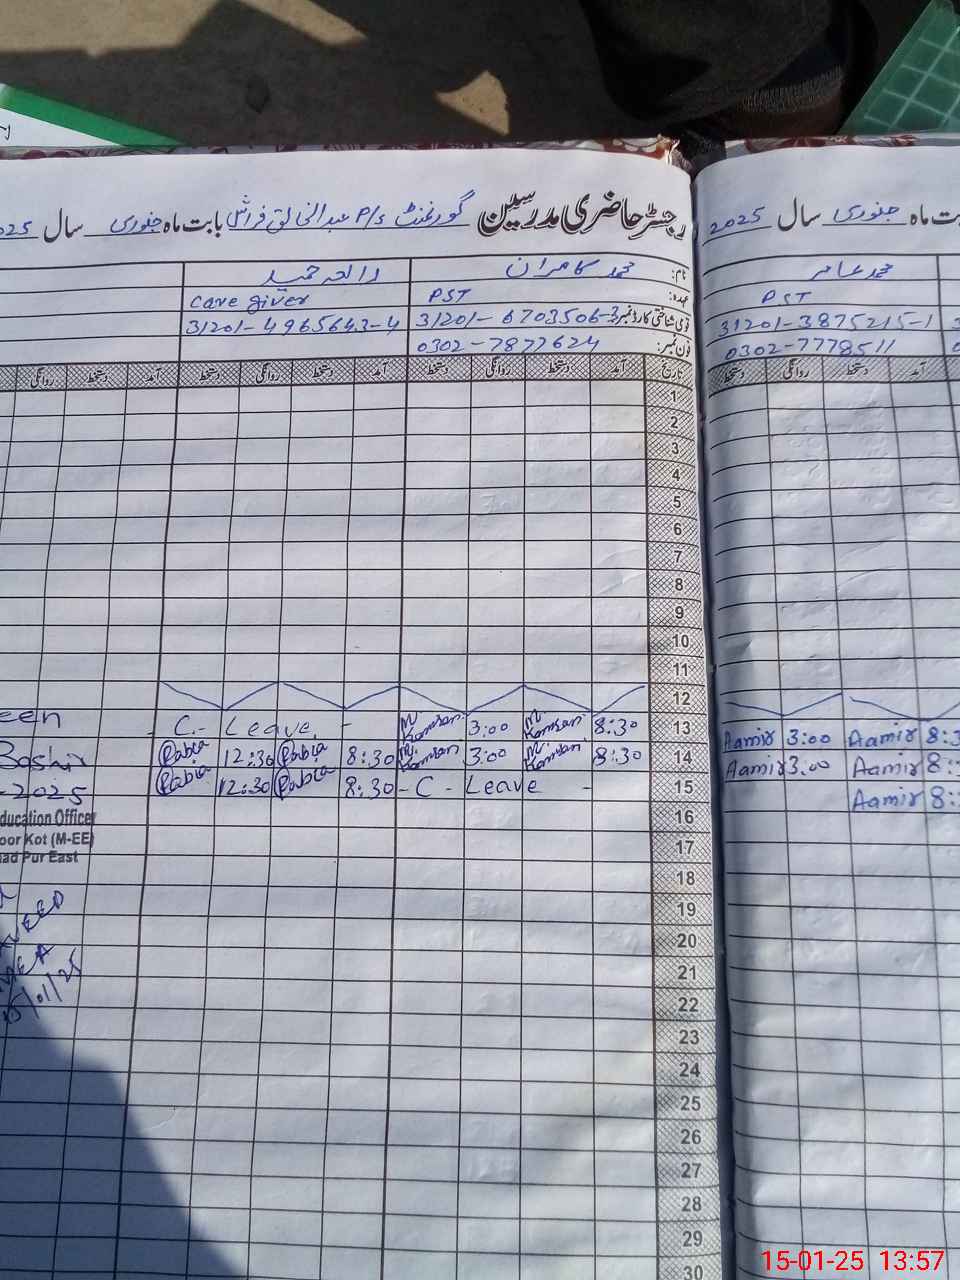 رجسٹر حاضری مدرسین گورنمنٹ P/S عبدالخالق فراش بابت ماہ جنوری سال 2025
نام: محمد کامران
عہدہ: PST Care giver
قومی شناختی کارڈ نمبر: 31201-6703506-3 31201-4965643-4
فون نمبر: 0302-7877624
تاریخ آمد دستخط روانگی دستخط آمد دستخط روانگی دستخط آمد دستخط روانگی
1
2
3
4
5
6
7
8
9
10
11
12
13 8:30 M. Kamran 3:00 M. Kamran - C - Leave -
14 8:30 M. Kamran 3:00 M. Kamran 8:30 Rabia 12:30 Rabia
15 - C - Leave - 8:30 Rabia 12:30 Rabia
16
17
18
19
20
21
22
23
24
25
26
27
28
29
30
een
Bashir
-2025
ducation Officer
oor Kot (M-EE)
ad Pur East
ماہ جنوری سال 2025
محمد عامر
PST
31201-3875215-1
0302-7778511
آمد دستخط روانگی دستخط
8:3 Aamir 3:00 Aamir
8: Aamir 3:00 Aamir
8: Aamir
15-01-25 13:57